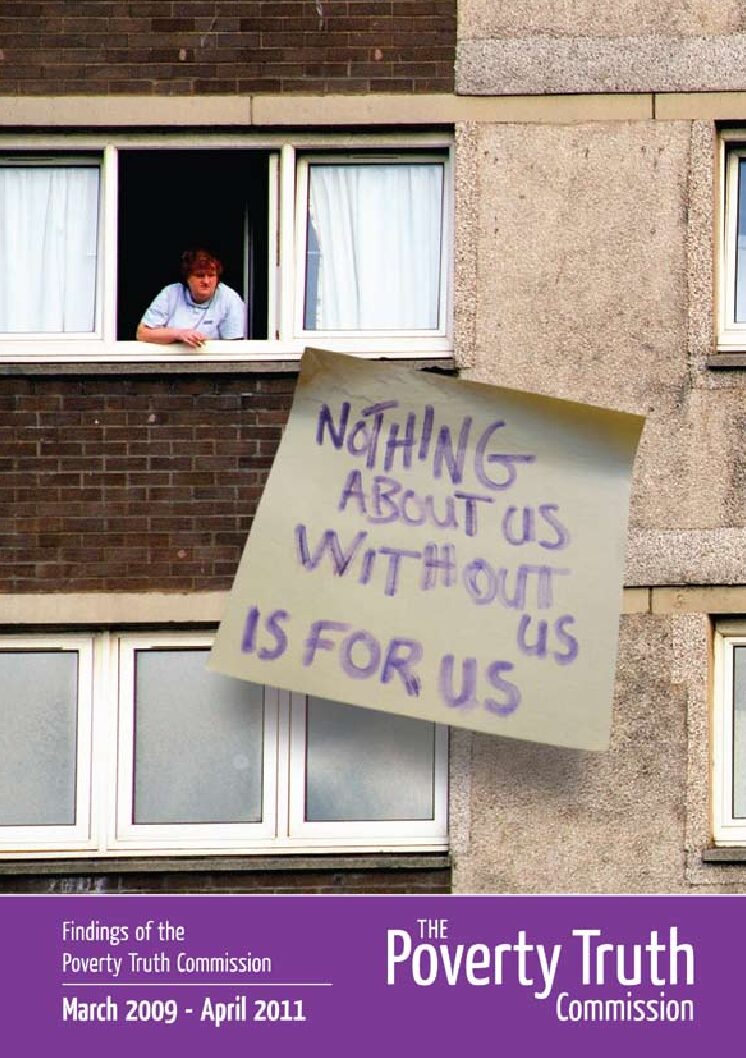 NOTHING
ABOUT US
WITHOUT
US
IS FOR US
Findings of the
Poverty Truth Commission
March 2009 - April 2011
THE
Poverty Truth
Commission